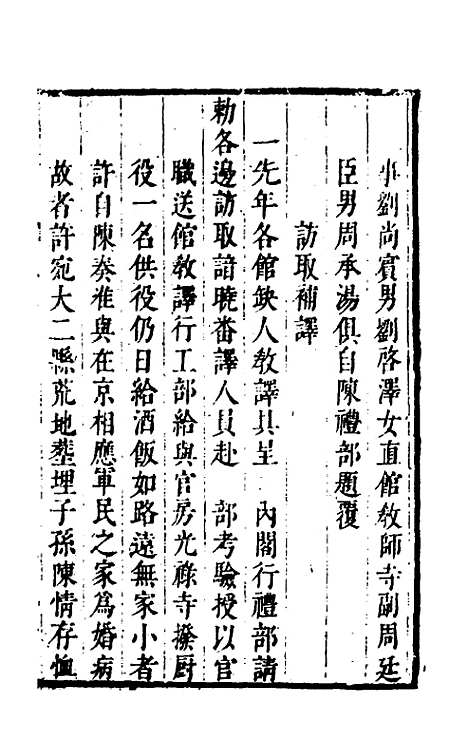 事劉尚賓男劉啓澤女直館教師寺副周廷
臣男周承湯俱自陳禮部題覆
訪取補譯
一先年各館缺人教譯具呈　內閣行禮部請
勅各邊訪取諳曉番譯人員赴　部考驗授以官
職送館教譯行工部給與官房光祿寺撥厨
役一名供役仍日給酒飯如路遠無家小者
許自陳奏准與在京相應軍民之家爲婚病
故者許宛大二縣荒地塟埋子孫陳情存恤